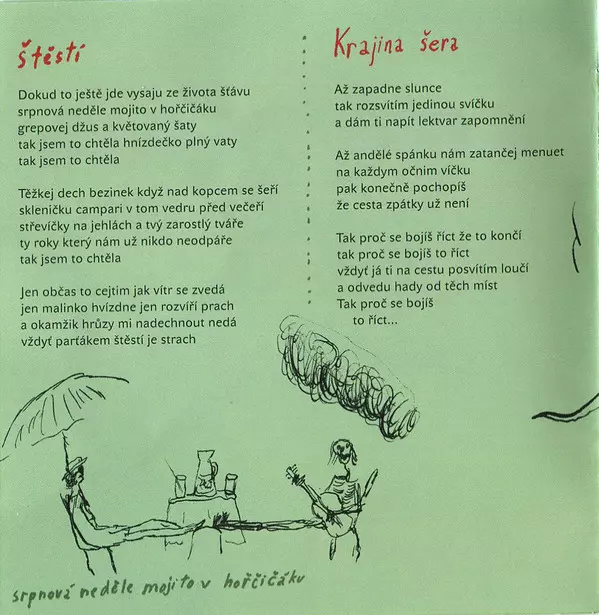 Štěstí
Dokud to ještě jde vysaju ze života šťávu
srpnová neděle mojito v hořčičáku
grepovej džus a květovaný šaty
tak jsem to chtěla hnízdečko plný vaty
tak jsem to chtěla
Těžkej dech bezinek když nad kopcem se šeří
skleničku campari v tom vedru před večeří
střevíčky na jehlách a tvý zarostlý tváře
ty roky který nám už nikdo neodpáře
tak jsem to chtěla
Jen občas to cejtim jak vítr se zvedá
jen malinko hvízdne jen rozvíří prach
a okamžik hrůzy mi nadechnout nedá
vždyť parťákem štěstí je strach
Krajina šera
Až zapadne slunce
tak rozsvítím jedinou svíčku
a dám ti napít lektvar zapomnění
Až andělé spánku nám zatančej menuet
na každym očnim víčku
pak konečně pochopíš
že cesta zpátky už není
Tak proč se bojíš říct že to končí
tak proč se bojíš to říct
vždyť já ti na cestu posvítím loučí
a odvedu hady od těch míst
Tak proč se bojíš
to říct...
srpnová neděle mojito v hořčičáku